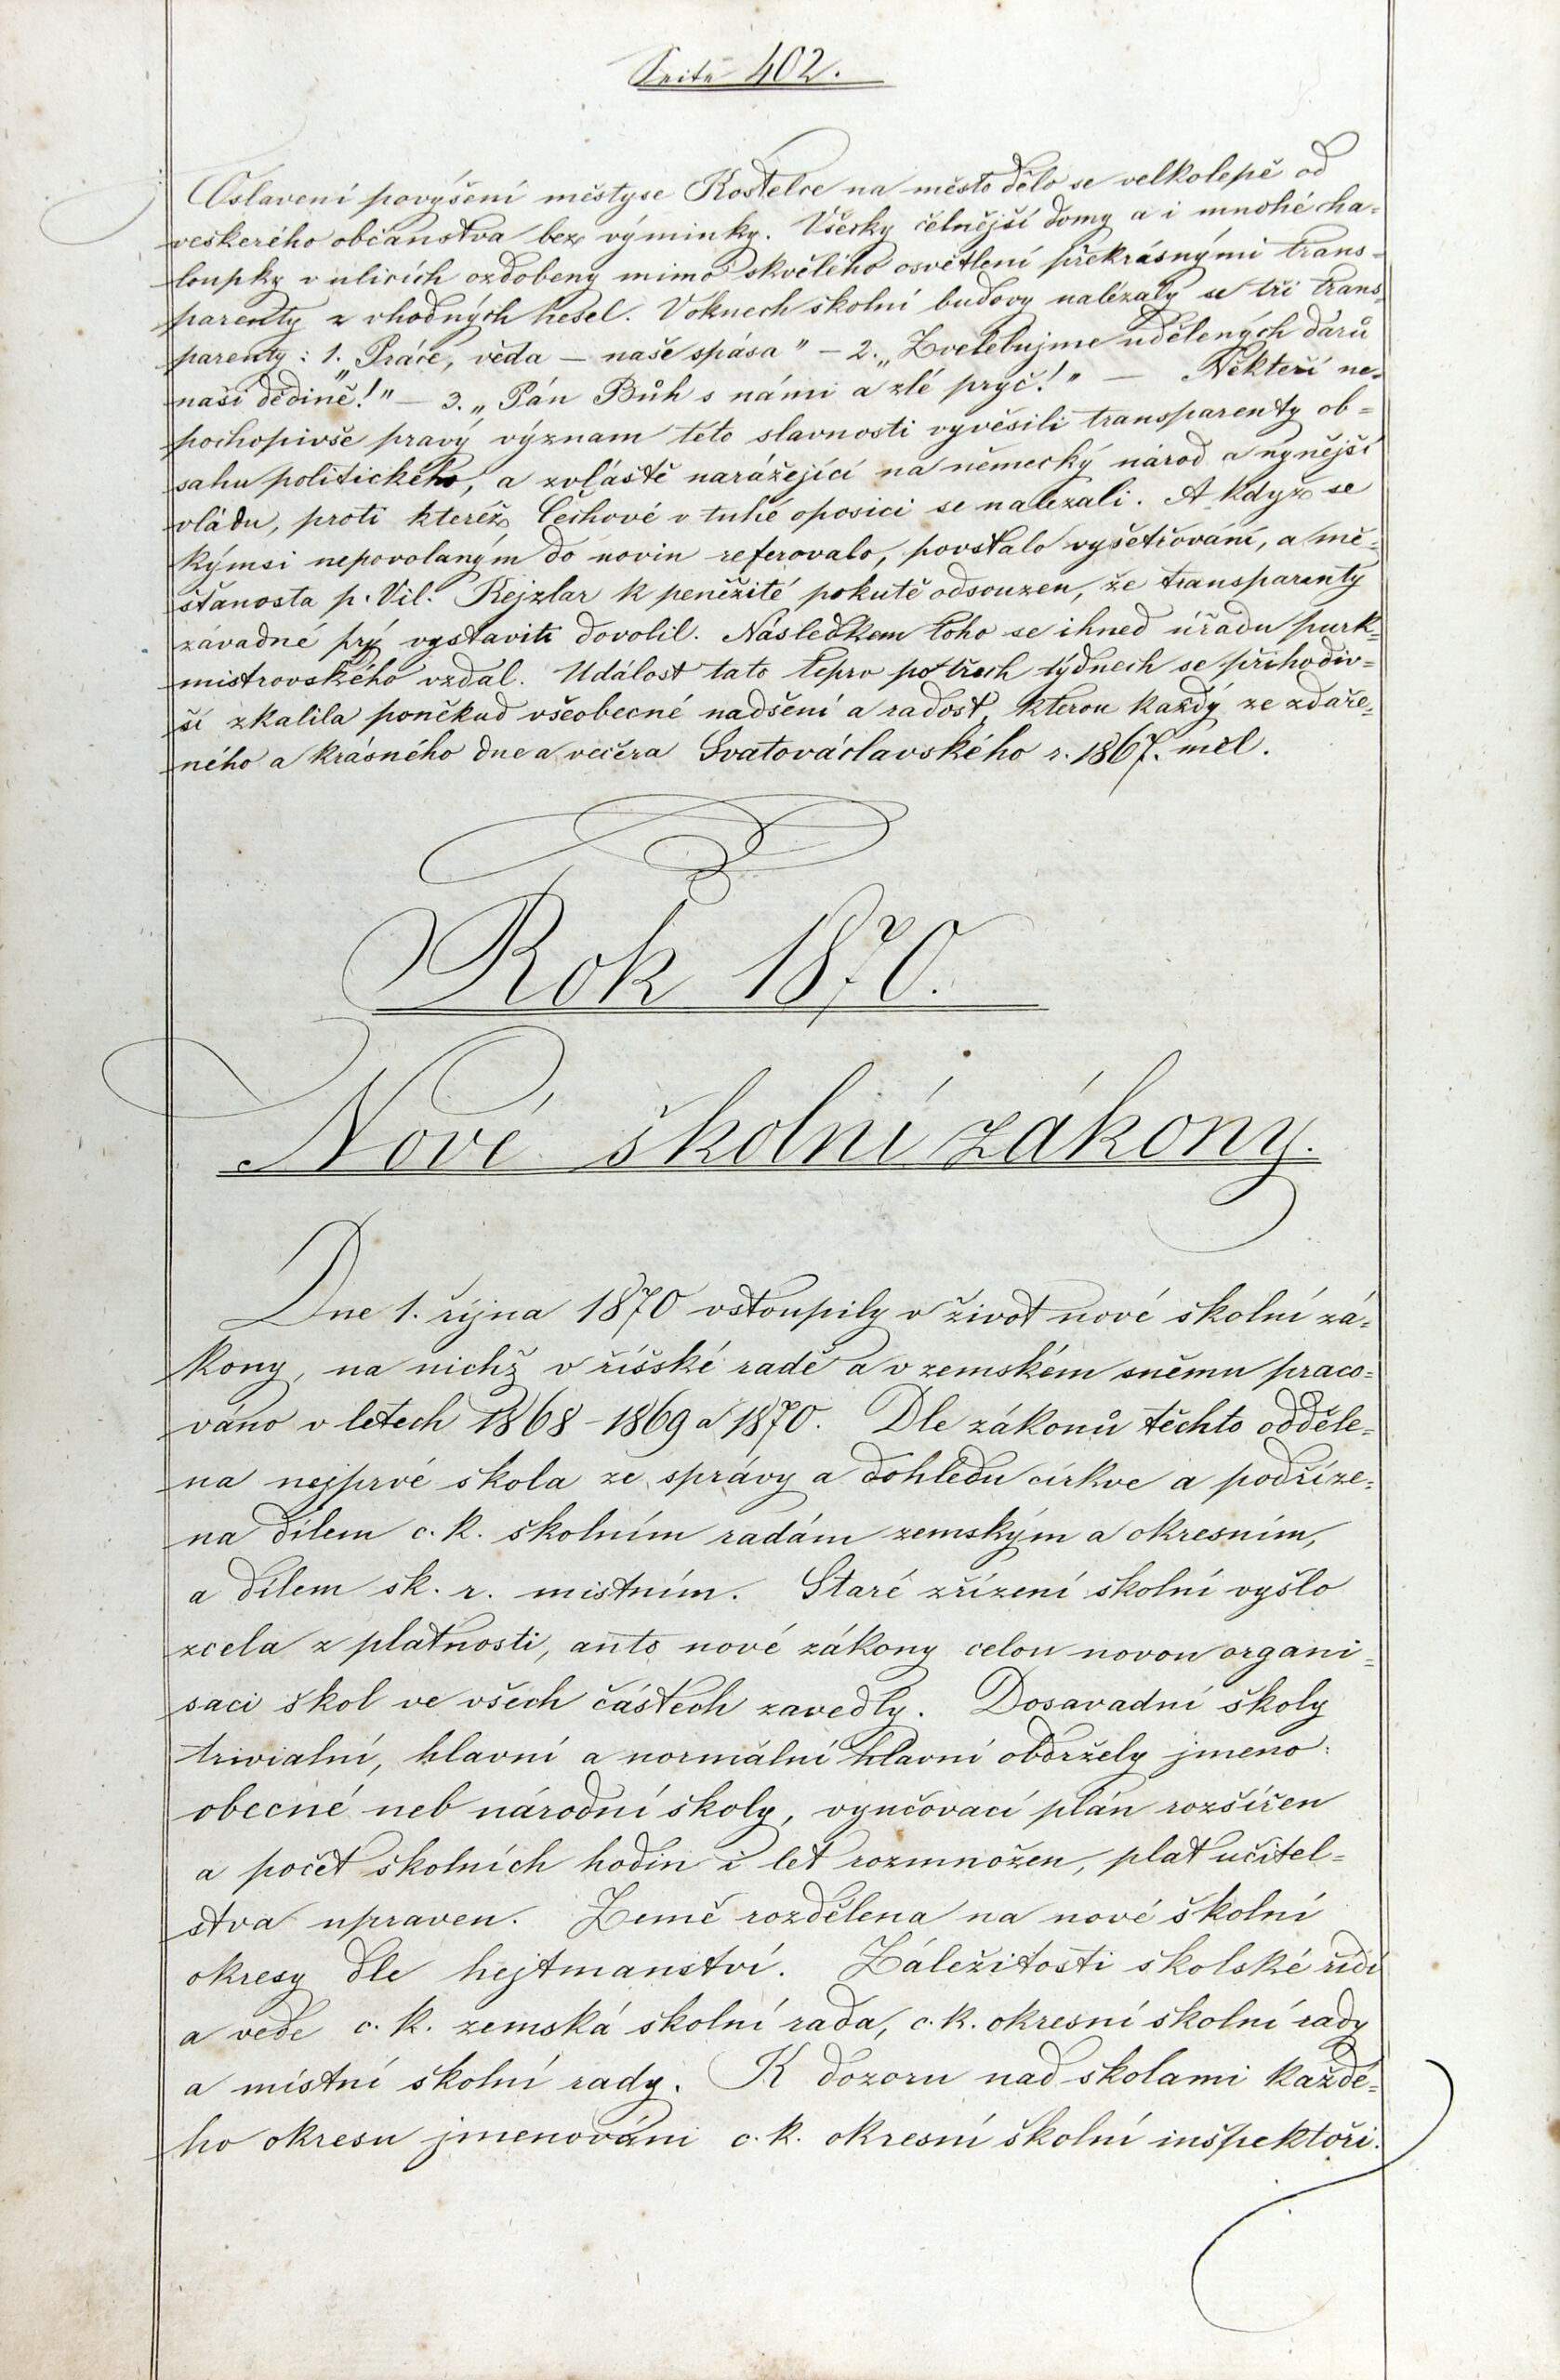 Seite 402.
Oslavení povýšení městyse Kostelce na město dělo se velkolepě od
veškerého občanstva bez výminky. Všecky čelnější domy a i mnohé cha=
loupky v ulicích ozdobeny mimo skvělého osvětlení překrásnými trans=
parenty z vhodných hesel. V oknech školní budovy nalézaly se tři trans=
parenty: 1. „Práce, věda – naše spása" – 2. „Zvelebujme udělených darů
naší dědině!" – 3. „Pán Bůh s námi a zlé pryč!" — Někteří ne=
pochopivše pravý význam této slavnosti vyvěsili transparenty ob=
sahu politického, a zvláště narážející na německý národ a nynější
vládu, proti kteréž Čechové v tuhé oposici se nalezali. A když se
kýmsi nepovolaným do novin referovalo, povstalo vyšetřování, a mě=
šťanosta p. Vil. Rejzlar k peněžité pokutě odsouzen, že transparenty
závadné prý vystaviti dovolil. Následkem toho se ihned úřadu purk=
mistrovského vzdal. Událost tato teprv po třech týdnech se přihodiv=
ší zkalila poněkud všeobecné nadšení a radost, kterou každý ze zdaře=
ného a krásného dne a večera Svatováclavského r. 1867. měl.
Rok 1870.
Nové školní zákony.
Dne 1. října 1870 vstoupily v život nové školní zá=
kony, na nichž v říšské radě a v zemském sněmu praco=
váno v letech 1868 – 1869 a 1870. Dle zákonů těchto odděle=
na nejprvé škola ze správy a dohledu církve a podříze=
na dílem c. k. školním radám zemským a okresním,
a dílem šk. r. místním. Staré zřízení školní vyšlo
zcela z platnosti, anto nové zákony celou novou organi=
saci škol ve všech částech zavedly. Dosavadní školy
trivialní, hlavní a normální hlavní obdržely jmeno:
obecné neb národní školy, vyučovací plán rozšířen
a počet školních hodin i let rozmnožen, plat učitel=
stva upraven. Země rozdělena na nové školní
okresy dle hejtmanství. Záležitosti školské řídí
a vede c. k. zemská školní rada, c. k. okresní školní rady
a místní školní rady. K dozoru nad školami každé=
ho okresu jmenováni c. k. okresní školní inšpektoři.